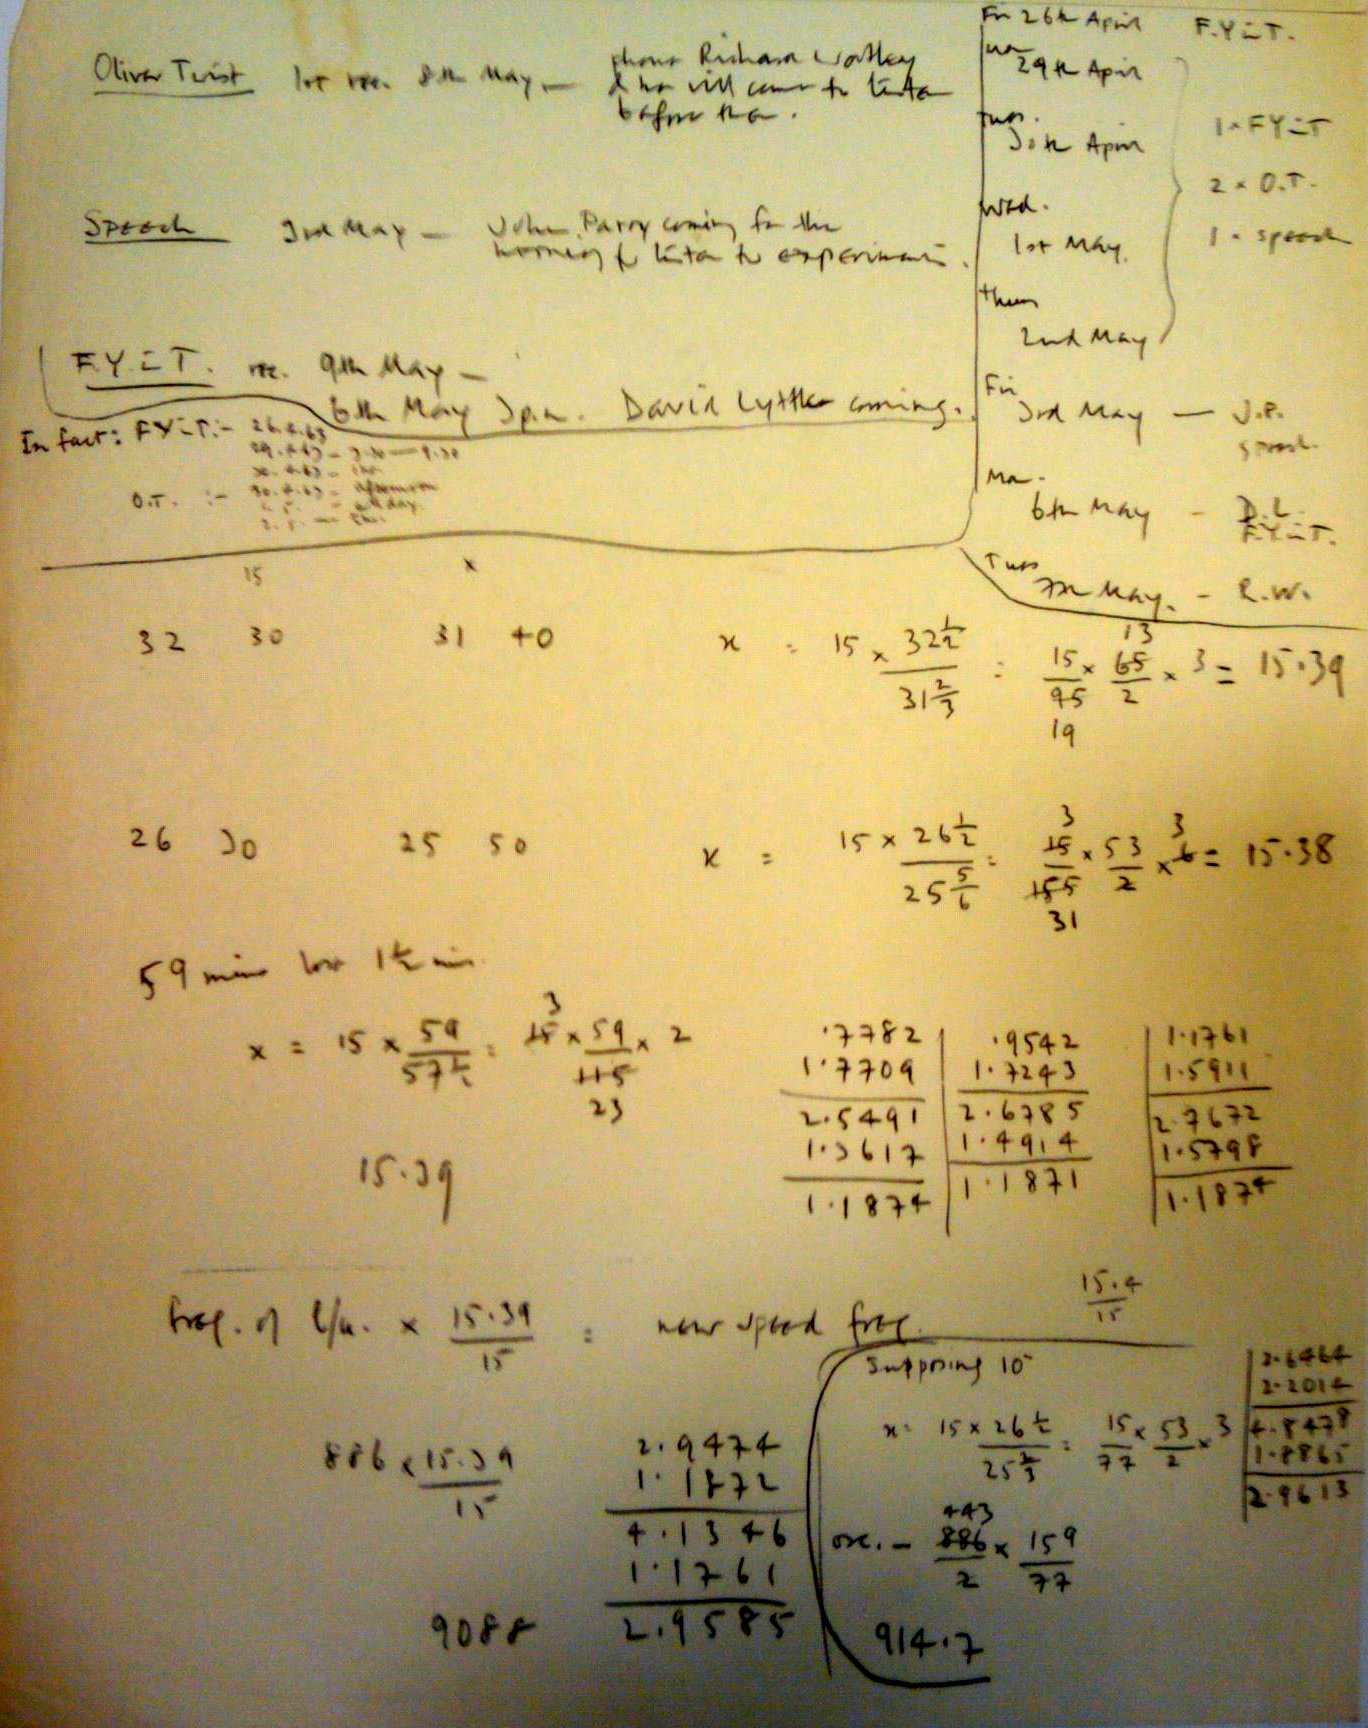 Oliver Twist 1st rec. 8th May, — phone Richard Wortley
& he will come to listen
before then.
Speech 3rd May — John Parry coming for the
morning to listen to experiments.
F.Y.=T. rec. 9th May —
6th May 3p.m. David Lyttle coming.
In fact: F.Y.=T. :- 26.4.63
O.T. :- 30.4.63 - afternoon
Fri 26th April F.Y.=T.
29th April
Tues. 30th April
Wed. 1st May
Thurs 2nd May
1 × F.Y.=T
2 × O.T.
1 × speech
Fri 3rd May — J.P.
speech.
Mon. 6th May - D.L.
F.Y.=T.
Tues 7th May. - R.W.
15 x
32 30 31 40 x = 15 × 32½ / 31⅔ = 15/95 × 65/2 × 3 = 15.39
13
19
26 30 25 50 x = 15 × 26½ / 25⅚ = 15/155 × 53/2 × 6 = 15.38
3 3
31
59 mins lose 1½ min
x = 15 × 59 / 57½ = 15 × 59/115 × 2
3
23
15.39
.7782
1.7709
2.5491
1.3617
1.1874
.9542
1.7243
2.6785
1.4914
1.1871
1.1761
1.5911
2.7672
1.5798
1.1874
15.4/15
freq. of l/u. × 15.39/15 = new speed freq.
886 × 15.39/15
2.9474
1.1872
4.1346
1.1761
2.9585
9088
Supposing 10
x = 15 × 26½ / 25⅔ = 15/77 × 53/2 × 3
osc. - 886/2 × 159/77
443
914.7
2.6464
2.2014
4.8478
1.8865
2.9613